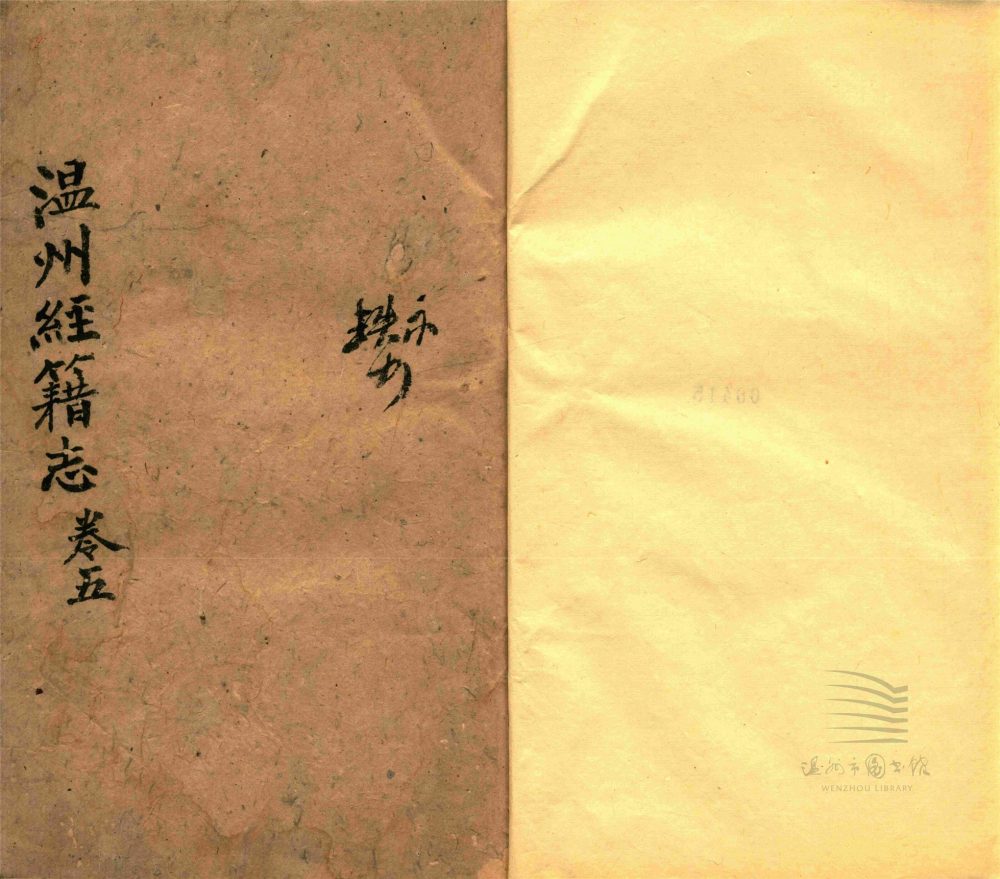 温州經籍志 卷五
温州市图书馆
WENZHOU LIBRARY